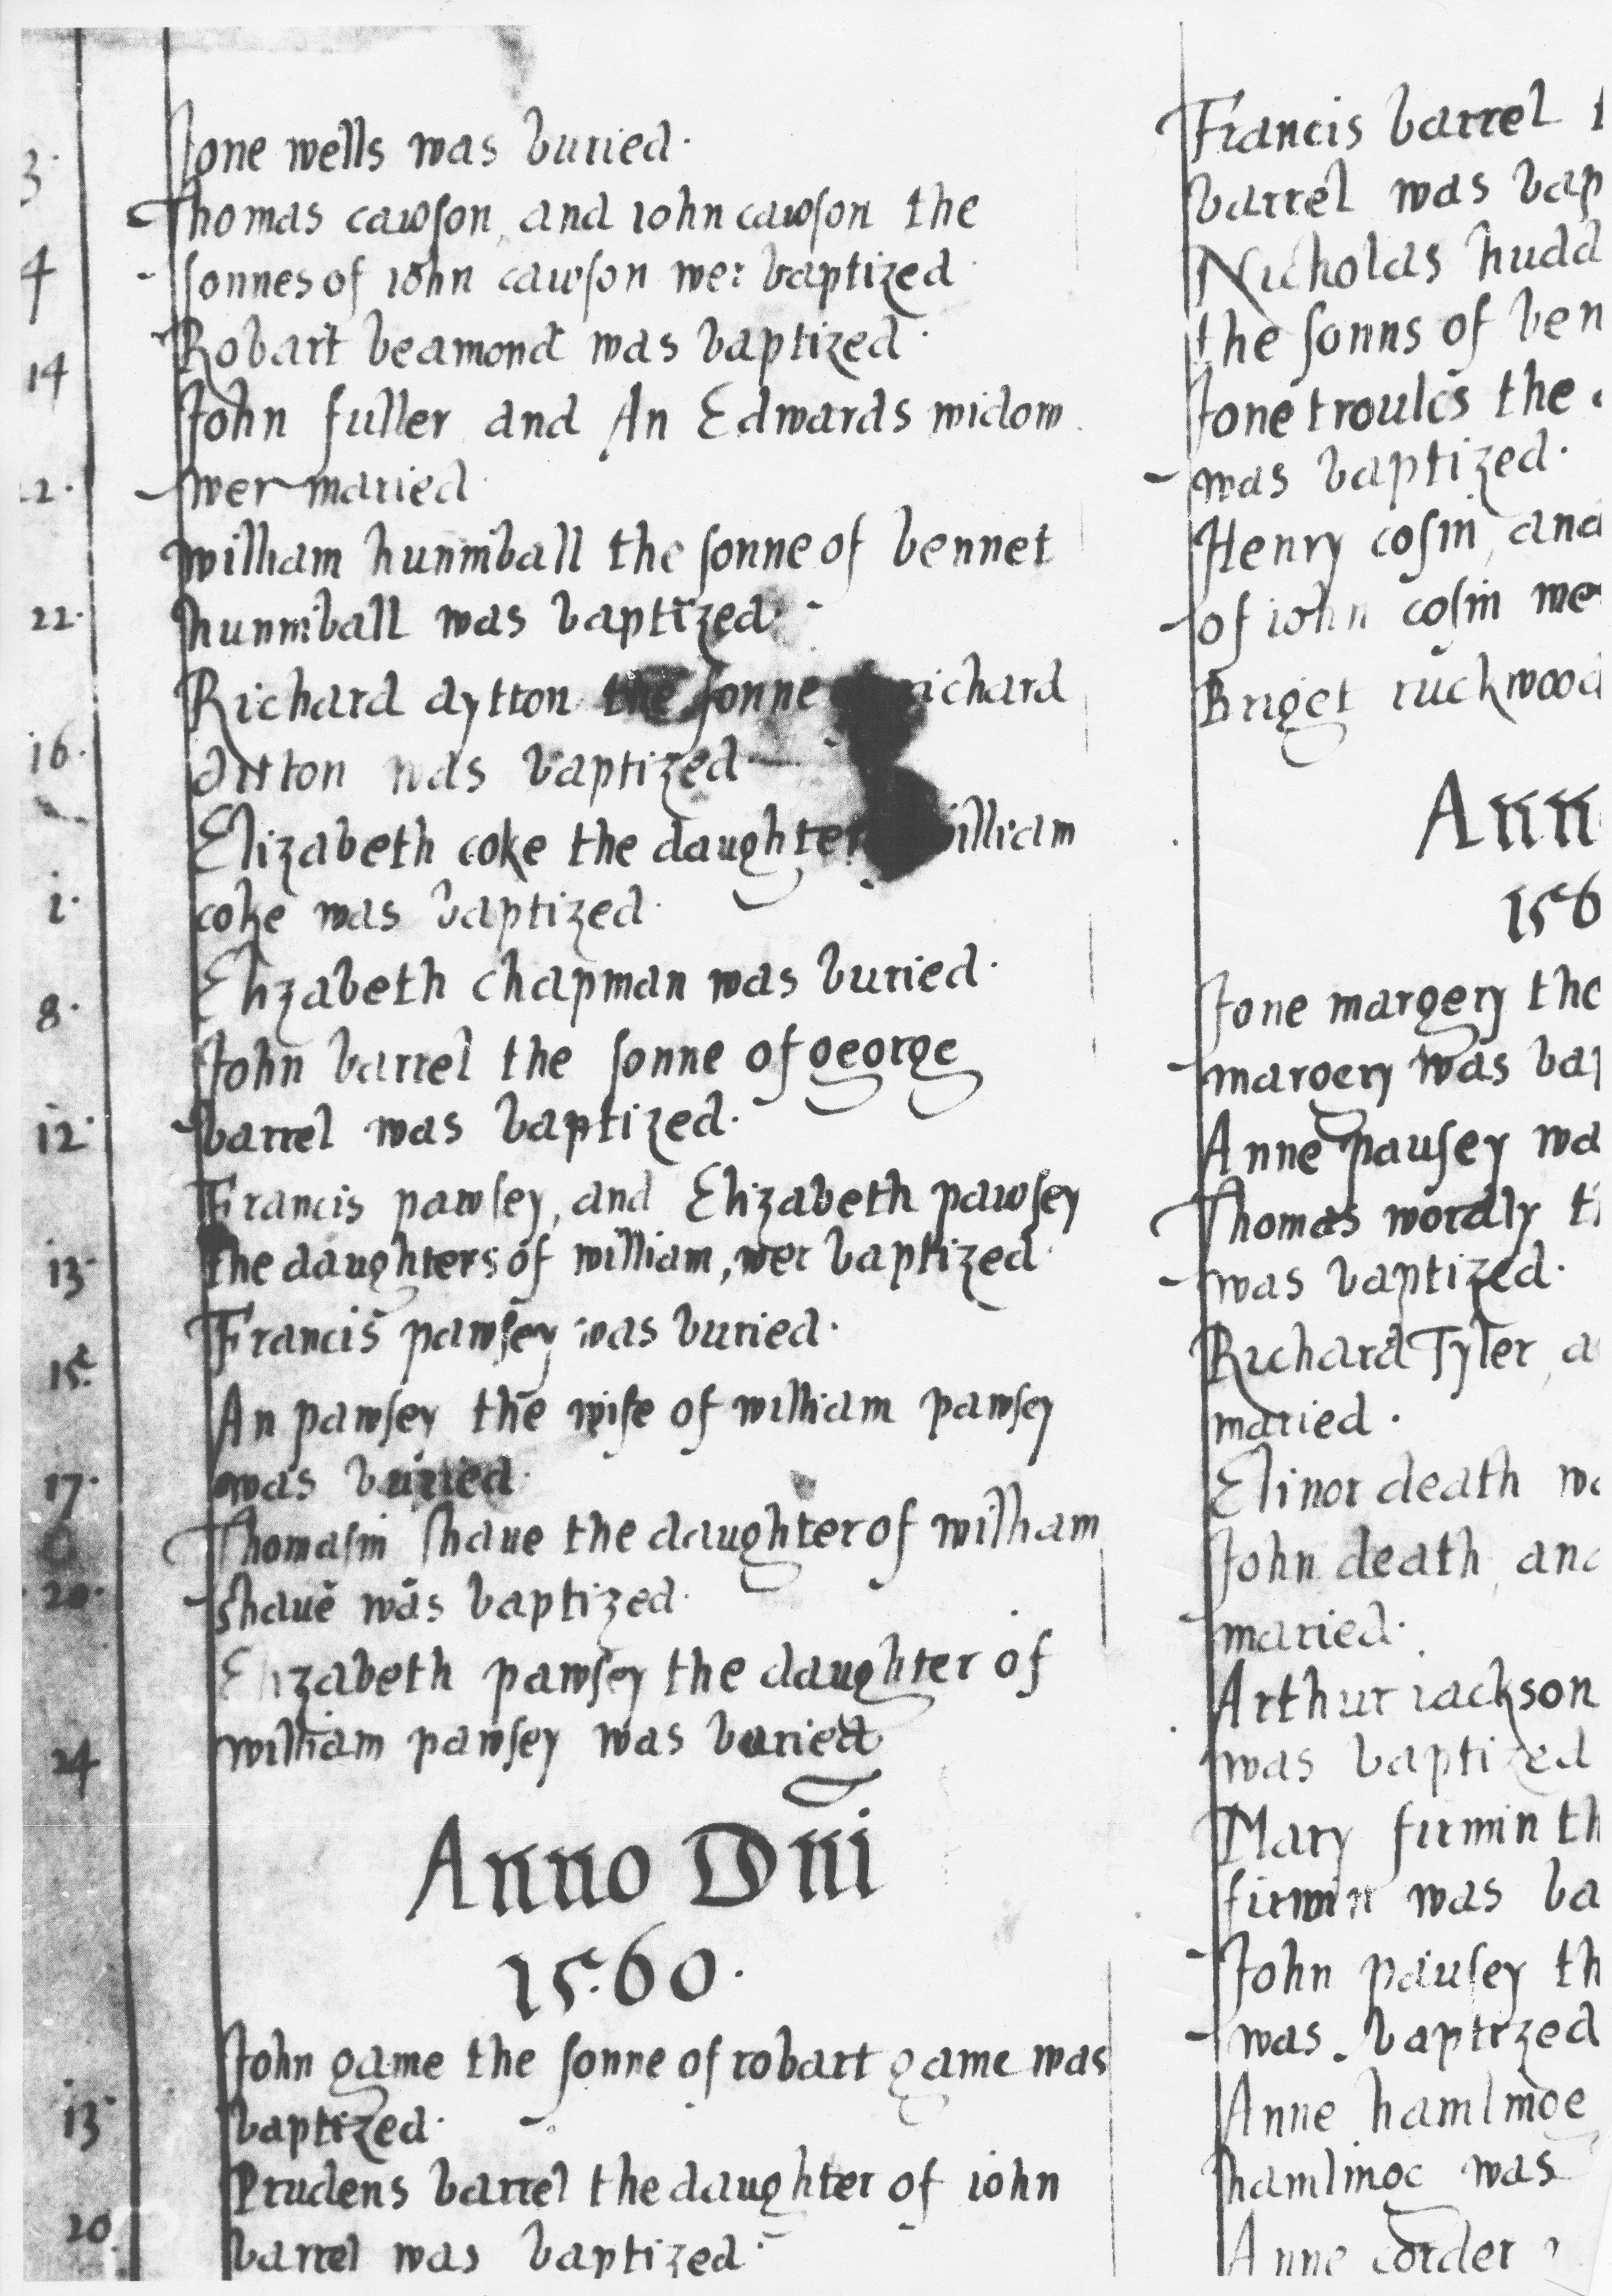 3. Jone wells was buried.
Thomas cawson, and iohn cawson the
4 sonnes of iohn cawson wer baptized
Robart beamond was baptized.
14
John fuller and An Edwards widow.
wer maried.
william hunniball the sonne of bennet
22. hunniball was baptized.
Richard aytton the sonne richard
16. was baptized
Elizabeth coke the daughter william
i. coke was baptized.
Elizabeth chapman was buried.
8.
John barrel the sonne of george
12. barrel was baptized.
Francis pawsey, and Elizabeth pawsey
13. the daughters of william, wer baptized.
Francis pawsey was buried.
15.
An pawsey the wife of william pawsey
17. was buried.
Thomasin shaue the daughter of william
20. shaue was baptized.
Elizabeth pawsey the daughter of
24 william pawsey was buried
Anno Dni
1560.
John game the sonne of robart game was
13. baptized.
Prudens barrel the daughter of iohn
20 barrel was baptized.
Francis barrel
barrel was bap
Nicholas hudd
the sonns of ben
Jone troules the
was baptized.
Henry cosin, and
of iohn cosin we
Briget ruckwood
Ann
156
Jone margery the
margery was bap
Anne pausey wa
Thomas wordly t
was baptized.
Richard Tyler, a
maried.
Elinor death wa
John death, and
maried.
Arthur iackson
was baptized
Mary firmin th
firmin was ba
John pausey th
was. baptized
Anne
was
Anne corder